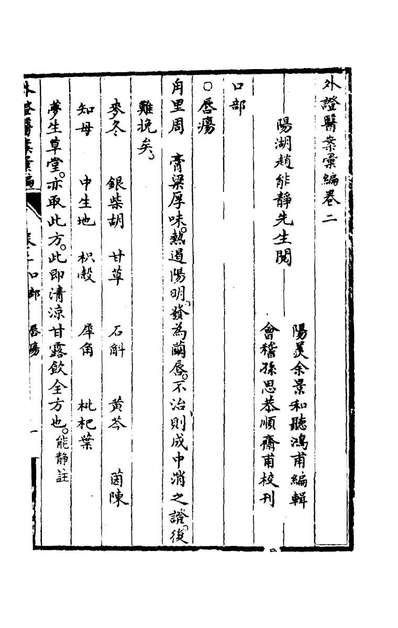 外證醫案彙編卷二
陽湖趙能靜先生閱
陽羨余景和聽鴻甫編輯
會稽孫思恭順齋甫校刊
口部
○唇瘍
角里周 膏粱厚味。熱遏陽明。發為繭唇。不治則成中消之證。後
難挽矣。
麥冬 銀柴胡 甘草 石斛 黃芩 茵陳
知母 中生地 枳殼 犀角 枇杷葉
夢生草堂。亦取此方。此即清涼甘露飲全方也。能靜註
外證醫案彙編 卷二 口部 唇瘍 一